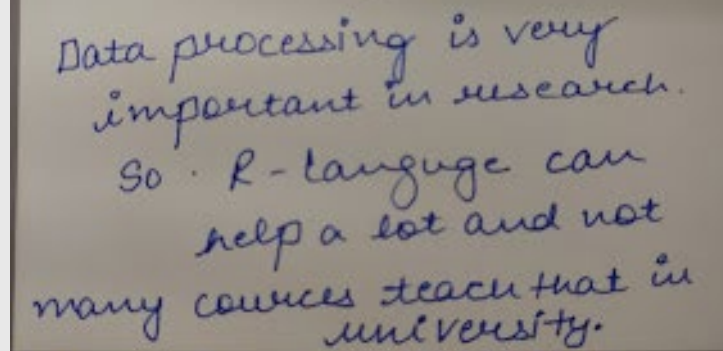 Data processing is very
important in research.
So · R-languge can
help a lot and not
many cources teach that in
university.